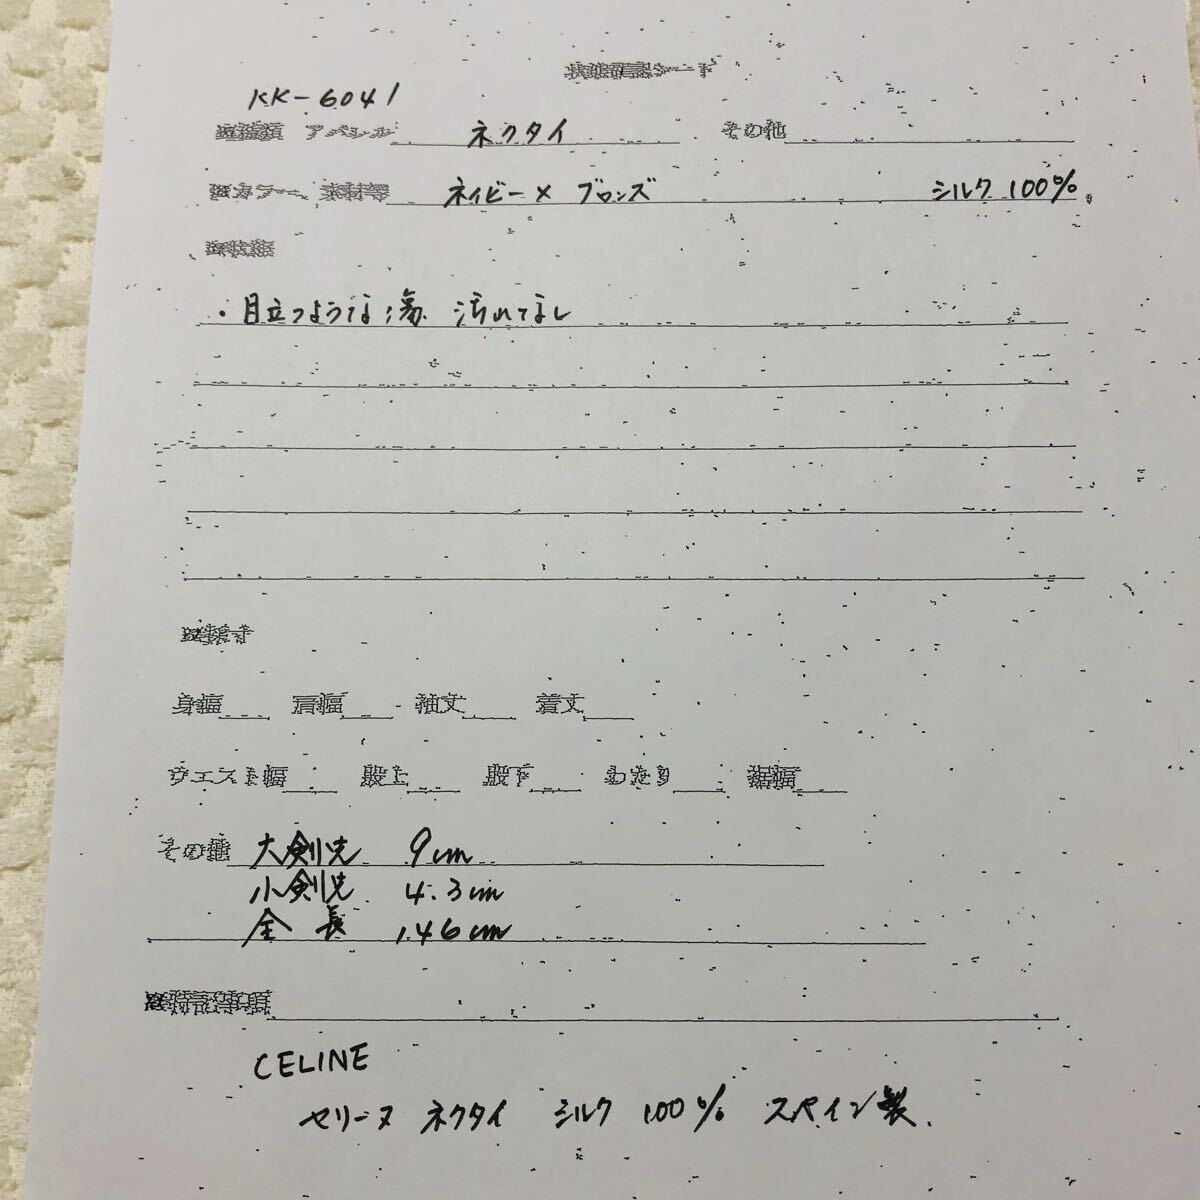 KK-6041
アパレル ネクタイ その他
カラー、素材等 ネイビー × ブロンズ シルク 100%
・目立つような傷 汚れてなし
身幅 肩幅 袖丈 着丈
ウエスト幅 股上 股下 わたり 裾幅
その他 大剣先 9cm
小剣先 4.3cm
全長 146cm
特記事項
CELINE
セリーヌ ネクタイ シルク 100% スペイン製.